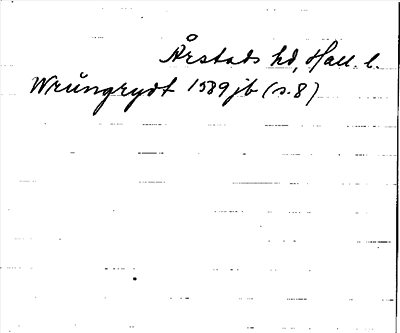 Årstads hd, Hall. l.
Wrångrydt 1589 jb (s. 8)